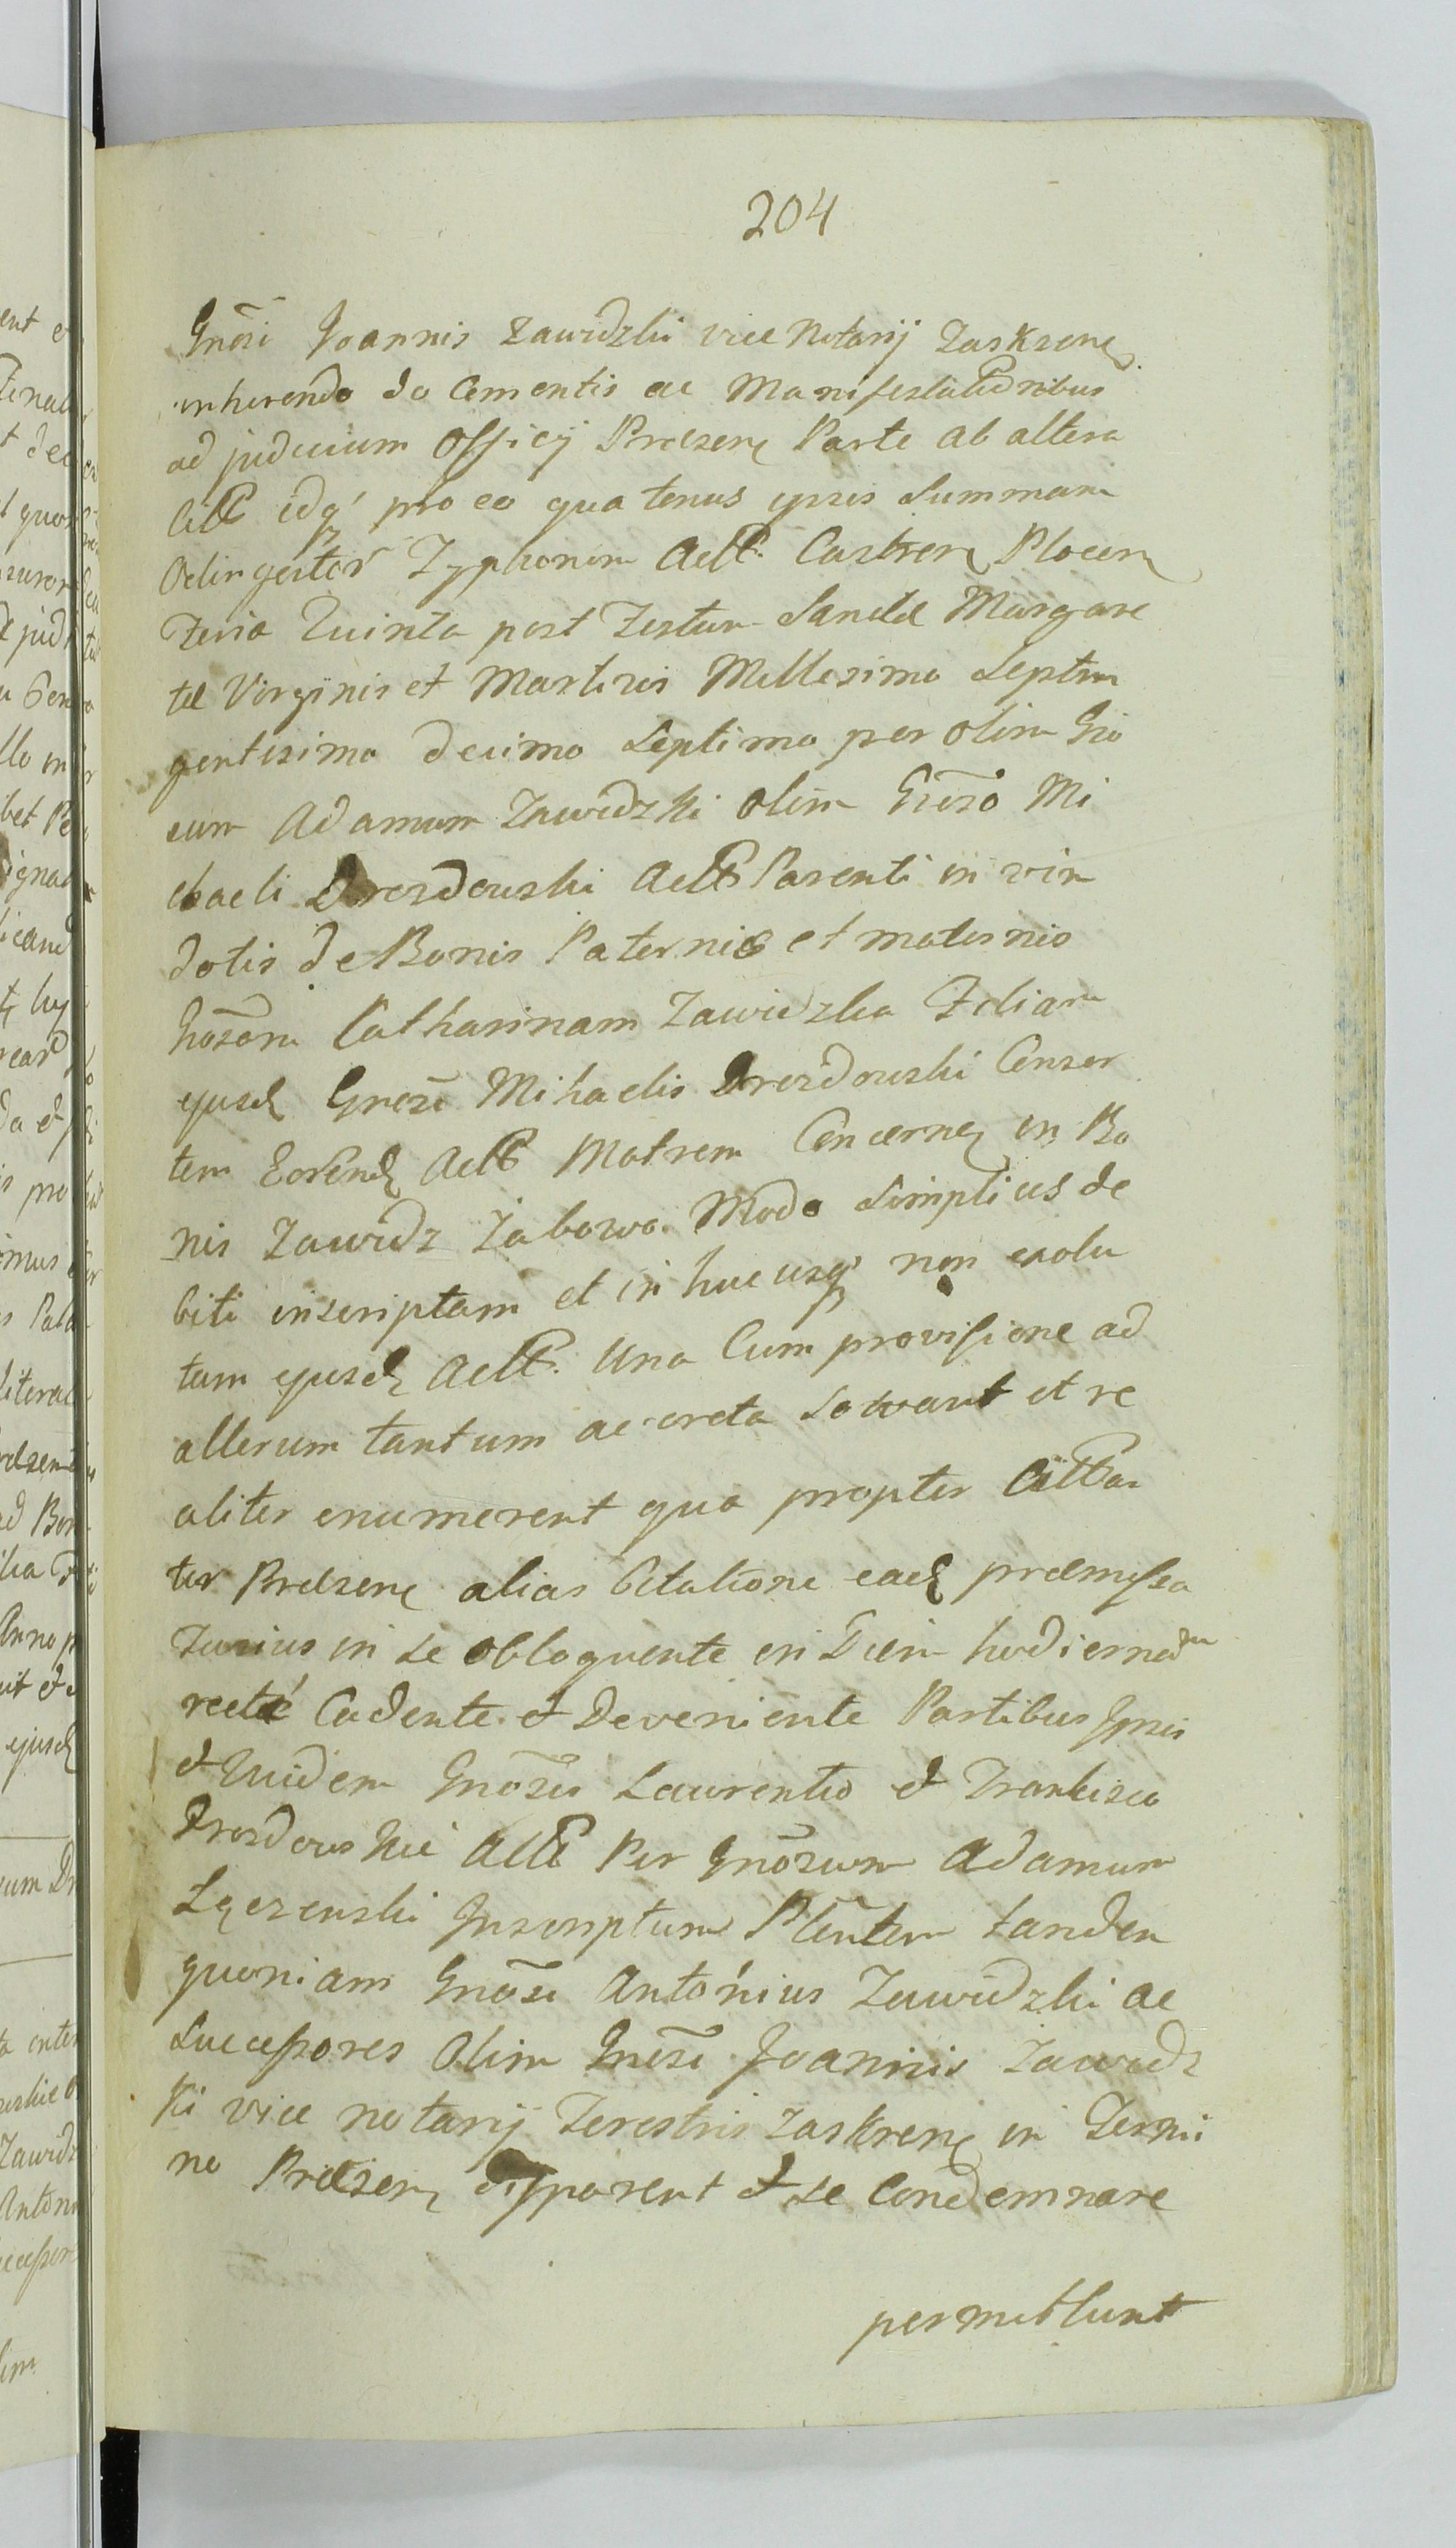 204
Gnosi Joannis Zawidzki vice Notarij Zaskrene
inherendo documentis ac Manifestationibus
ad judicium Officij Praesen Parte ab altera
Citt idq pro eo qua tenus ipsis Summam
Octingentor Typhonum Actt. Castren Plocen
Feria Quinta post Festum Sanctae Margare
tae Virginis et Martiris Millesimo Septin
gentesimo decimo Septimo per olim Gno
sum Adamum Zawidzki olim Gnoso Mi
chaeli Drozdowski Actt Parenti in vim
dotis de Bonis Paternis et maternis
Gnosam Catharinam Zawidzka Filiam
ejusd Gnosi Mihaelis Drozdowski Consor
tem Eorund Actt Matrem Concernen in Bo
nis Zawidz Zabowo Modo Simplicis de
biti inscriptam et in huc usq non exolu
tam ejusd Actt. Una Cum provisione ad
alterum tantum accreta Solvant et re
aliter enumerent qua propter Citta
tur Praesens alias Citatione ead praemissa
Fusius in se obloquente in Diem hodierna m
recte Cadente et Deveniente Partibus Ipsis
et Quidem Gnosis Laurentio et Francisco
Drozdowskie Actt Per Gnosum Adamum
Inscriptum Plentem tandem
quoniam Gnosi Antonius Zawidzki ac
Successores Olim Gnosi Joannis Zawidz
ki vice notarij Terestris Zaskrene in Termi
no Praesen et se Condemnare
permittunt